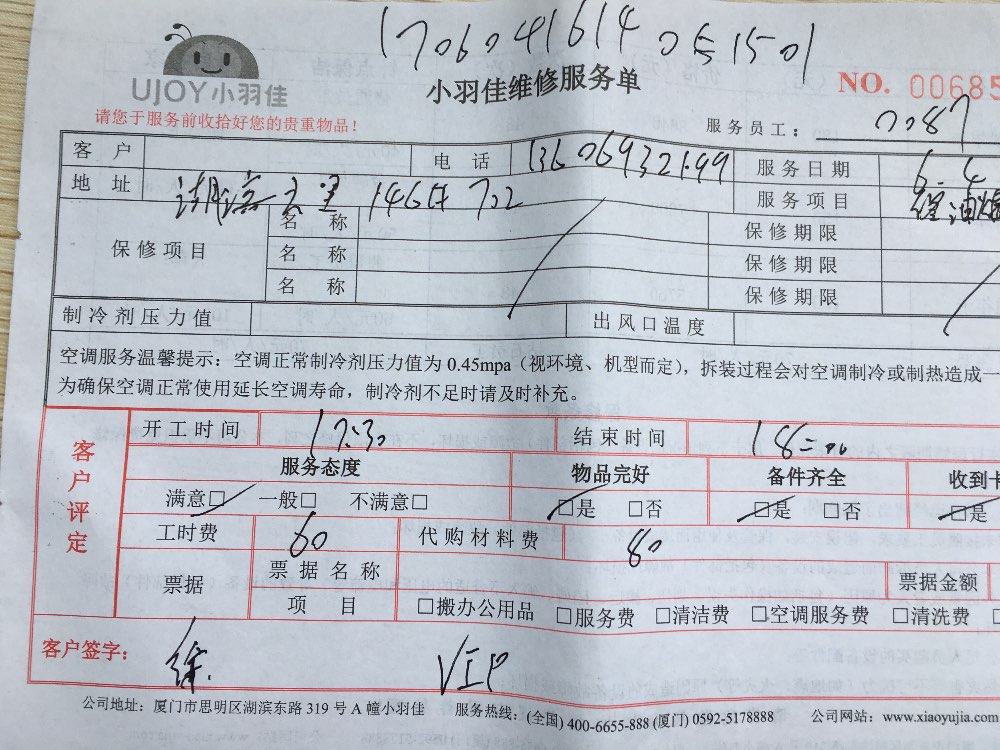 1706041614051501
UJOY小羽佳
小羽佳维修服务单
NO. 00685
请您于服务前收拾好您的贵重物品！
服务员工： 0087
客 户 电 话 13606932199 服务日期 6.4
地 址 湖滨 146# 702 服务项目 油烟
保修项目 名 称 保修期限
名 称 保修期限
名 称 保修期限
制冷剂压力值 出风口温度
空调服务温馨提示：空调正常制冷剂压力值为 0.45mpa（视环境、机型而定），拆装过程会对空调制冷或制热造成一
为确保空调正常使用延长空调寿命，制冷剂不足时请及时补充。
客户评定
开工时间 17:30 结束时间 18:00
服务态度 物品完好 备件齐全 收到卡
满意□ 一般□ 不满意□ □是 □否 □是 □否 □是
工时费 60 代购材料费 80
票据 票据名称 票据金额
项 目 □搬办公用品 □服务费 □清洁费 □空调服务费 □清洗费
客户签字： 徐 VIP
公司地址：厦门市思明区湖滨东路 319 号 A 幢小羽佳 服务热线：(全国) 400-6655-888 (厦门) 0592-5178888 公司网站：www.xiaoyujia.com